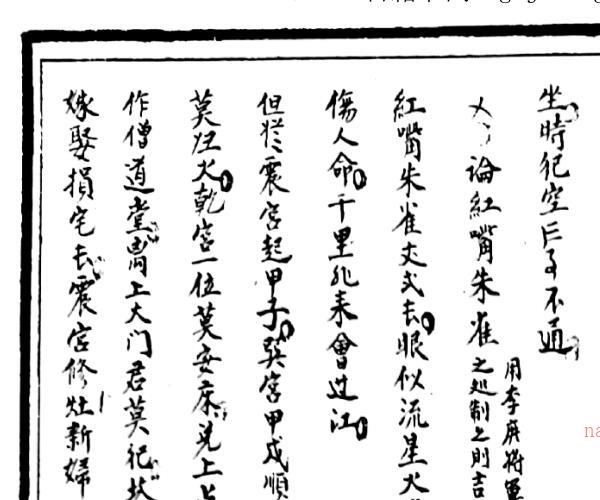 坐時犯空亡了不通
又論紅嘴朱雀之処制之則吉
用李廣將軍
紅嘴朱雀丈式長眼似流星火
傷人命千里能来會过江
但於震宮起甲子巽宮甲戌順
莫犯火乾宮一位莫安床兑上
作僧道堂离上大门君莫犯
嫁娶損宅長震宮修灶新婦
na